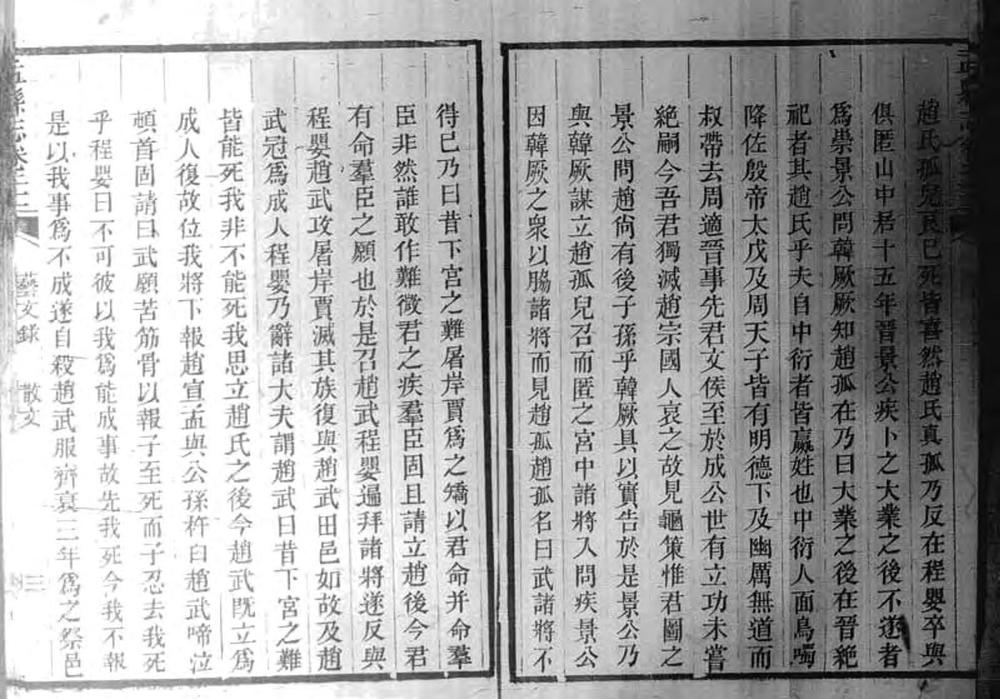 趙氏孤兒良已死皆喜然趙氏真孤乃反在程嬰卒與
俱匿山中居十五年晉景公疾卜之大業之後不遂者
爲崇景公問韓厥厥知趙孤在乃曰大業之後在晉絶
祀者其趙氏乎夫自中衍者皆嬴姓也中衍人面鳥噣
降佐殷帝太戊及周天子皆有明德下及幽厲無道而
叔帶去周適晉事先君文侯至於成公世有立功未嘗
絶嗣今吾君獨滅趙宗國人哀之故見龜策惟君圖之
景公問趙尚有後子孫乎韓厥具以實告於是景公乃
與韓厥謀立趙孤兒召而匿之宮中諸將入問疾景公
因韓厥之衆以脇諸將而見趙孤趙孤名曰武諸將不
得已乃曰昔下宮之難屠岸賈爲之矯以君命并命羣
臣非然誰敢作難微君之疾羣臣固且請立趙後今君
有命羣臣之願也於是召趙武程嬰遍拜諸將遂反與
程嬰趙武攻屠岸賈滅其族復與趙武田邑如故及趙
武冠爲成人程嬰乃辭諸大夫謂趙武曰昔下宮之難
皆能死我非不能死我思立趙氏之後今趙武既立爲
成人復故位我將下報趙宣孟與公孫杵臼趙武啼泣
頓首固請曰武願苦筋骨以報子至死而子忍去我死
乎程嬰曰不可彼以我爲能成事故先我死今我不報
是以我事爲不成遂自殺趙武服齊衰三年爲之祭邑
盂縣志卷之二
藝文錄
散文
三